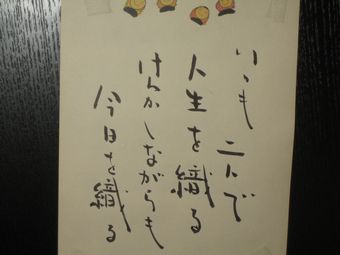 いつも 二人で
人生を織る
けんかしながらも
今日を織る